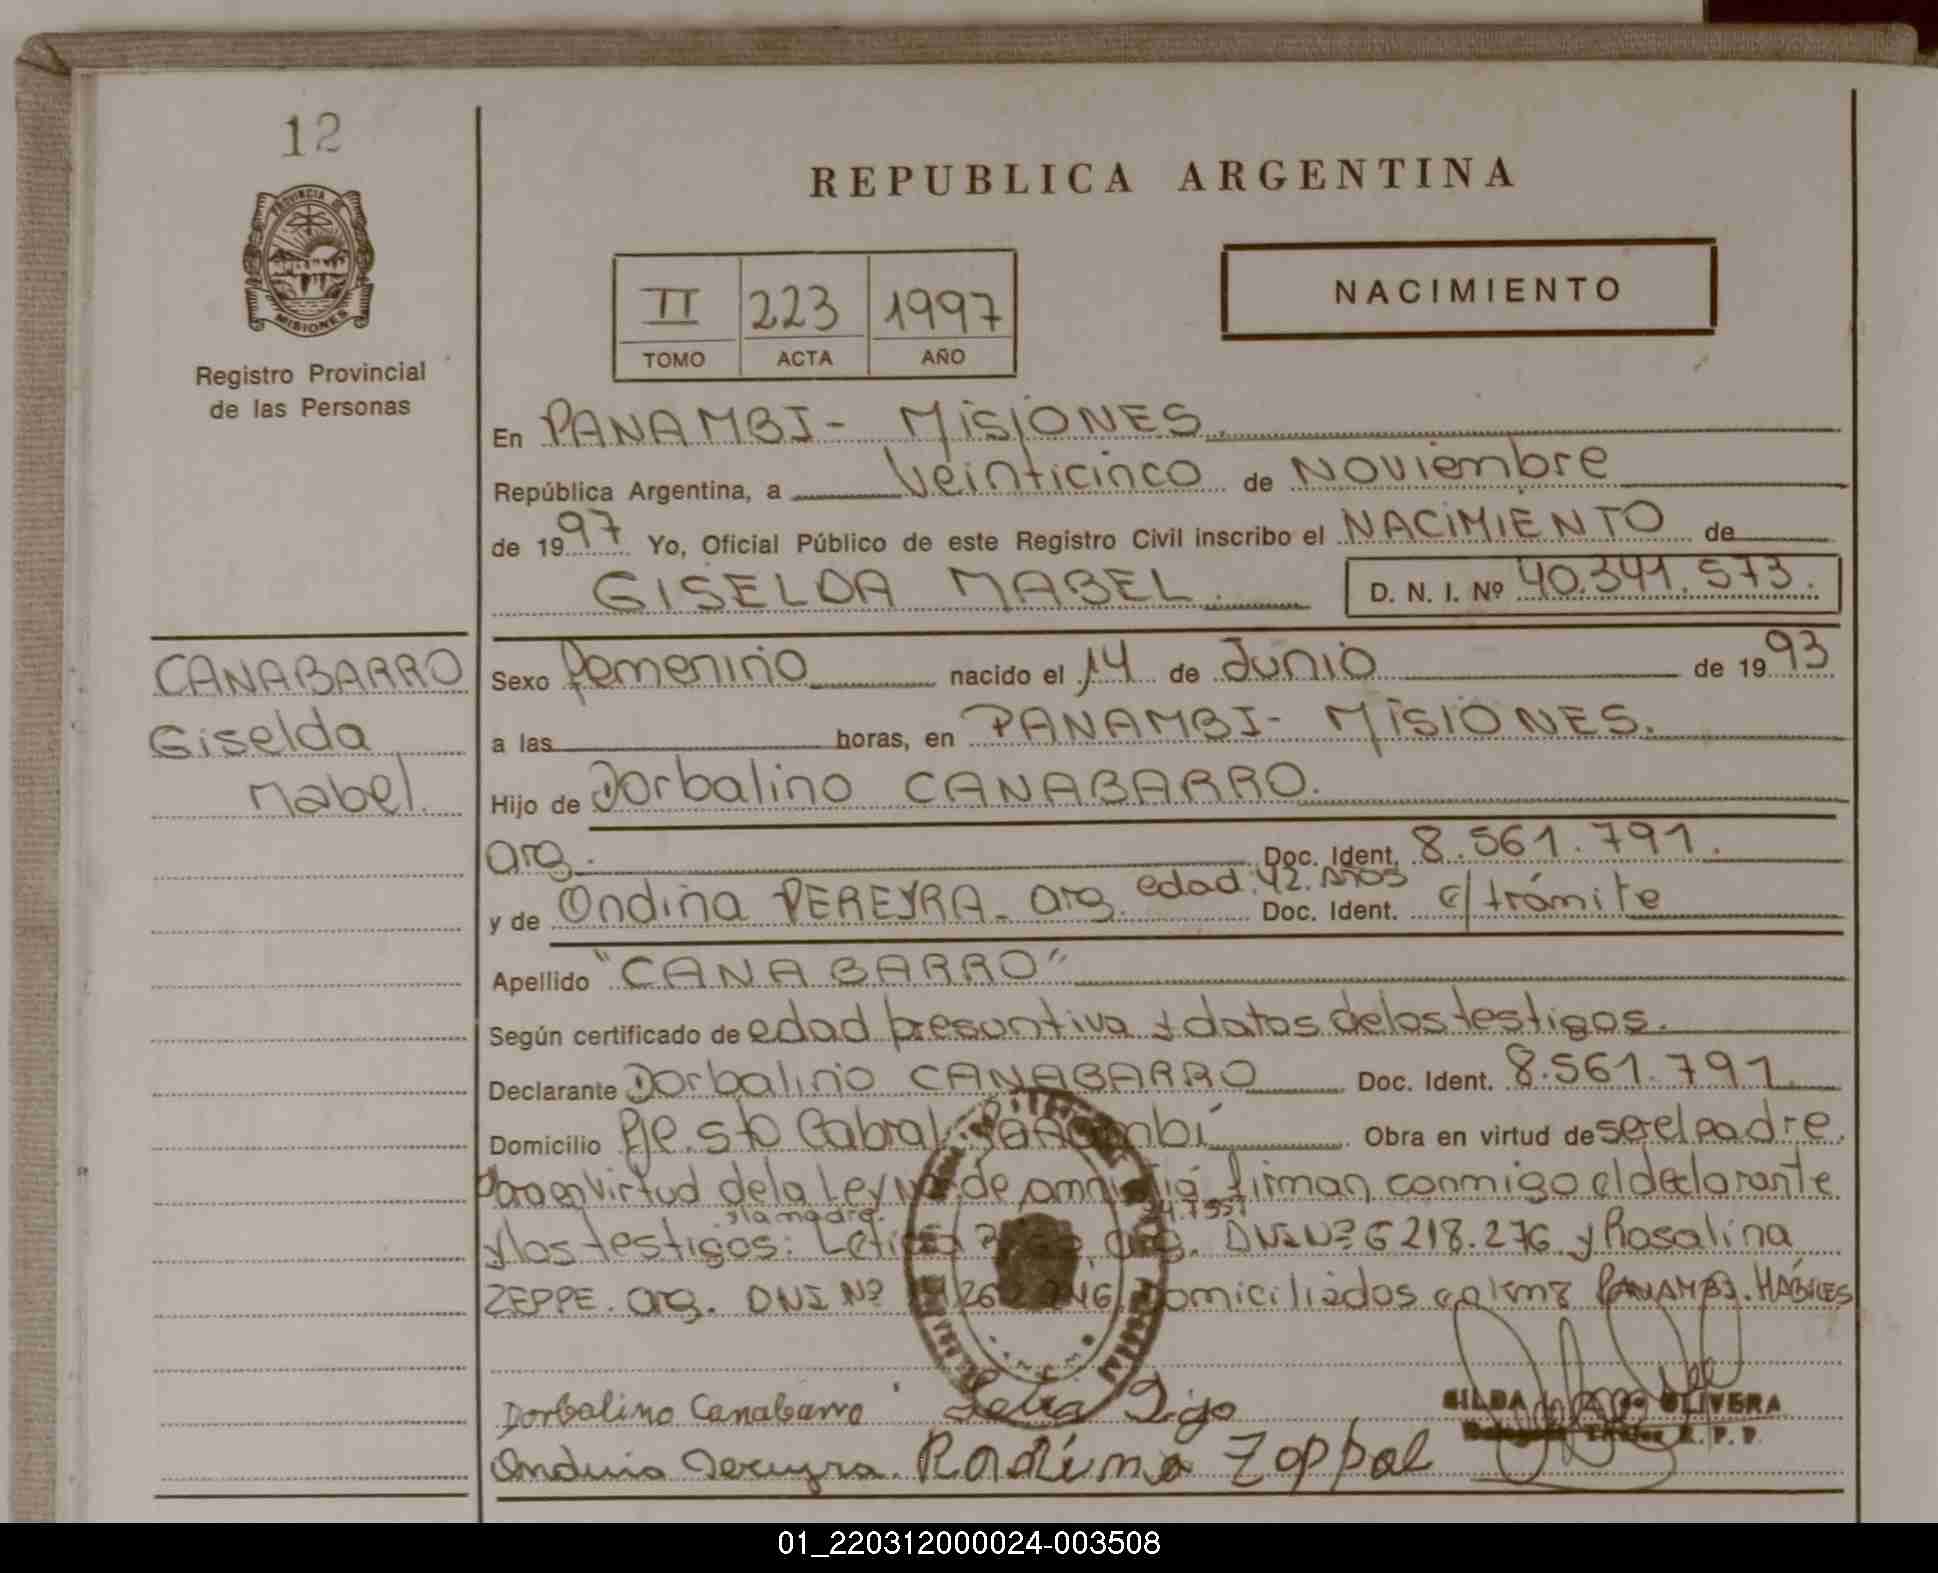 12
REPUBLICA ARGENTINA
PROVINCIA DE
MISIONES
Registro Provincial
de las Personas
II 223 1997
TOMO ACTA AÑO
NACIMIENTO
En PANAMBI - MISIONES.
República Argentina, a veinticinco de Noviembre
de 1997 Yo, Oficial Público de este Registro Civil inscribo el NACIMIENTO de
GISELDA MABEL. D. N. I. Nº 40.341.573.
CANABARRO
Giselda
Mabel.
Sexo femenino nacido el 14 de Junio de 1993
a las horas, en PANAMBI - MISIONES.
Hijo de Dorbalino CANABARRO.
arg. Doc. Ident. 8.561.791.
y de Ondina PEREYRA - arg. edad: 42. años Doc. Ident. c/ trámite
Apellido "CANABARRO"
Según certificado de edad presuntiva y datos de los testigos.
Declarante Dorbalino CANABARRO Doc. Ident. 8.561.791
Domicilio Pje. Sto Cabral Panambí Obra en virtud de ser el padre.
en virtud de la Ley de amnistía firman conmigo el declarante
y la madre. 24.755
y los testigos: arg. DNI Nº 6 218.276 y Rosalina
ZEPPE. arg. DNI Nº domiciliados PANAMBI. HÁBILES
Dorbalino Canabarro
Ondina Pereyra
GILDA OLIVERA
R. P. P.
01_220312000024-003508